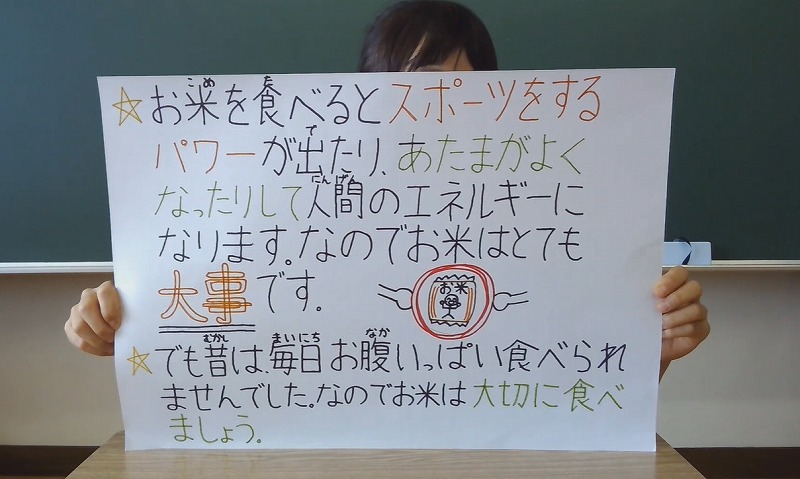 ☆お米を食べるとスポーツをする
パワーが出たり、あたまがよく
なったりして人間のエネルギーに
なります。なのでお米はとても
大事です。
お米
☆でも昔は、毎日お腹いっぱい食べられ
ませんでした。なのでお米は大切に食べ
ましょう。